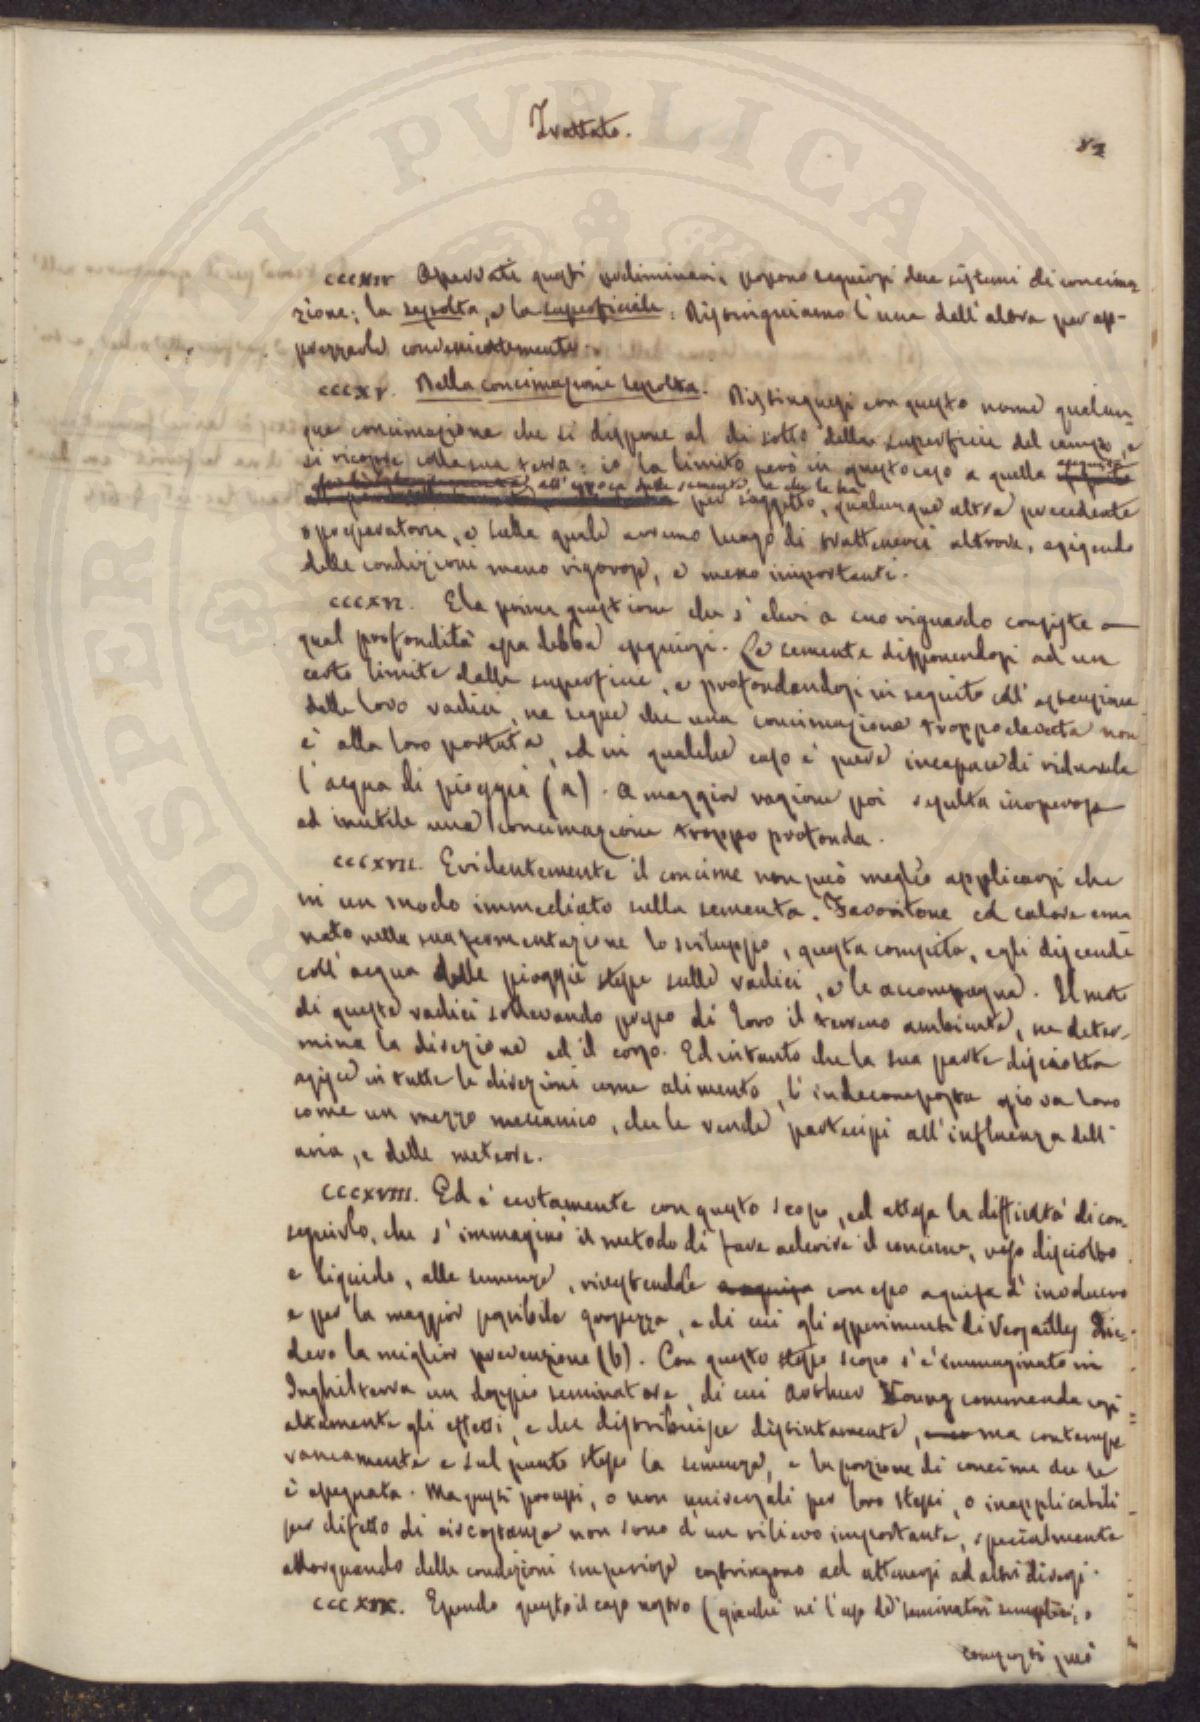 Trattato.
82
CCCXIV. Osservati questi preliminari, possono seguirsi due sistemi di concima-
zione; la sepolta, e la superficiale. Distinguiamo l'una dell'altra per ap-
prezzarle convenientemente.
CCCXV. Della concimazione sepolta. Distinguesi con questo nome qualun-
que concimazione che si dispone al di sotto della superficie del campo, e
si ricopre colla sua terra: io la limito però in questo caso a quella
all'epoca delle semente, e che le ha
per soggetto, qualunque altra precedente
o preparatoria, e sulla quale avremo luogo di trattenerci altrove, esigendo
delle condizioni meno rigorose, e meno importanti.
CCCXVI. E la prima questione che s'elevi a suo riguardo consiste a
qual profondità essa debba eseguirsi. Le semente disponendosi ad un
certo limite dalla superficie, e profondandosi in seguito coll'estensione
delle loro radici, ne segue che una concimazione troppo elevata non
è alla loro portata, ed in qualche caso è pure incapace di ridursela
l'acqua di pioggia (a). A maggior ragione poi risulta inoperosa
ed inutile una concimazione troppo profonda.
CCCXVII. Evidentemente il concime non può meglio applicarsi che
in un modo immediato sulla sementa. Favoritone col calore ema-
nato nella sua fermentazione lo sviluppo, questa compita, egli discende
coll'acqua delle pioggie stesse sulle radici, e le accompagna. Il moto
di queste radici sollevando presso di loro il terreno ambiente, ne deter-
mina la direzione ed il corso. Ed intanto che la sua parte disciolta
agisce in tutte le direzioni come alimento, l'indecomposta giova loro
come un mezzo meccanico, che le rende partecipi all'influenza dell'
aria, e delle meteore.
CCCXVIII. Ed è certamente con questo scopo, ed attesa la difficoltà di con-
seguirlo, che s'immaginò il metodo di fare aderire il concime, reso disciolto
e liquido, alle semenze, rivestendole a guisa con esso a guisa d'involucro
e per la maggior possibile grossezza, e di cui gli esperimenti di Versailles
la miglior prevenzione (b). Con questo stesso scopo s'è immaginato in
Inghilterra un doppio seminatore, di cui Arthur Young commenda così
altamente gli effetti, e che distribuisce distintamente, ma contempo
raneamente e sul punto stesso la semenza, e la porzione di concime che le
è assegnata. Ma questi processi, o non universali per loro stessi, o inapplicabili
per difetto di circostanze non sono d'un rilievo importante, specialmente
allorquando delle condizioni imperiose costringono ad attenersi ad altri diversi.
CCCXIX. Essendo questo il caso nostro (giacchè nè l'uso de' seminatori semplici, o
composti può